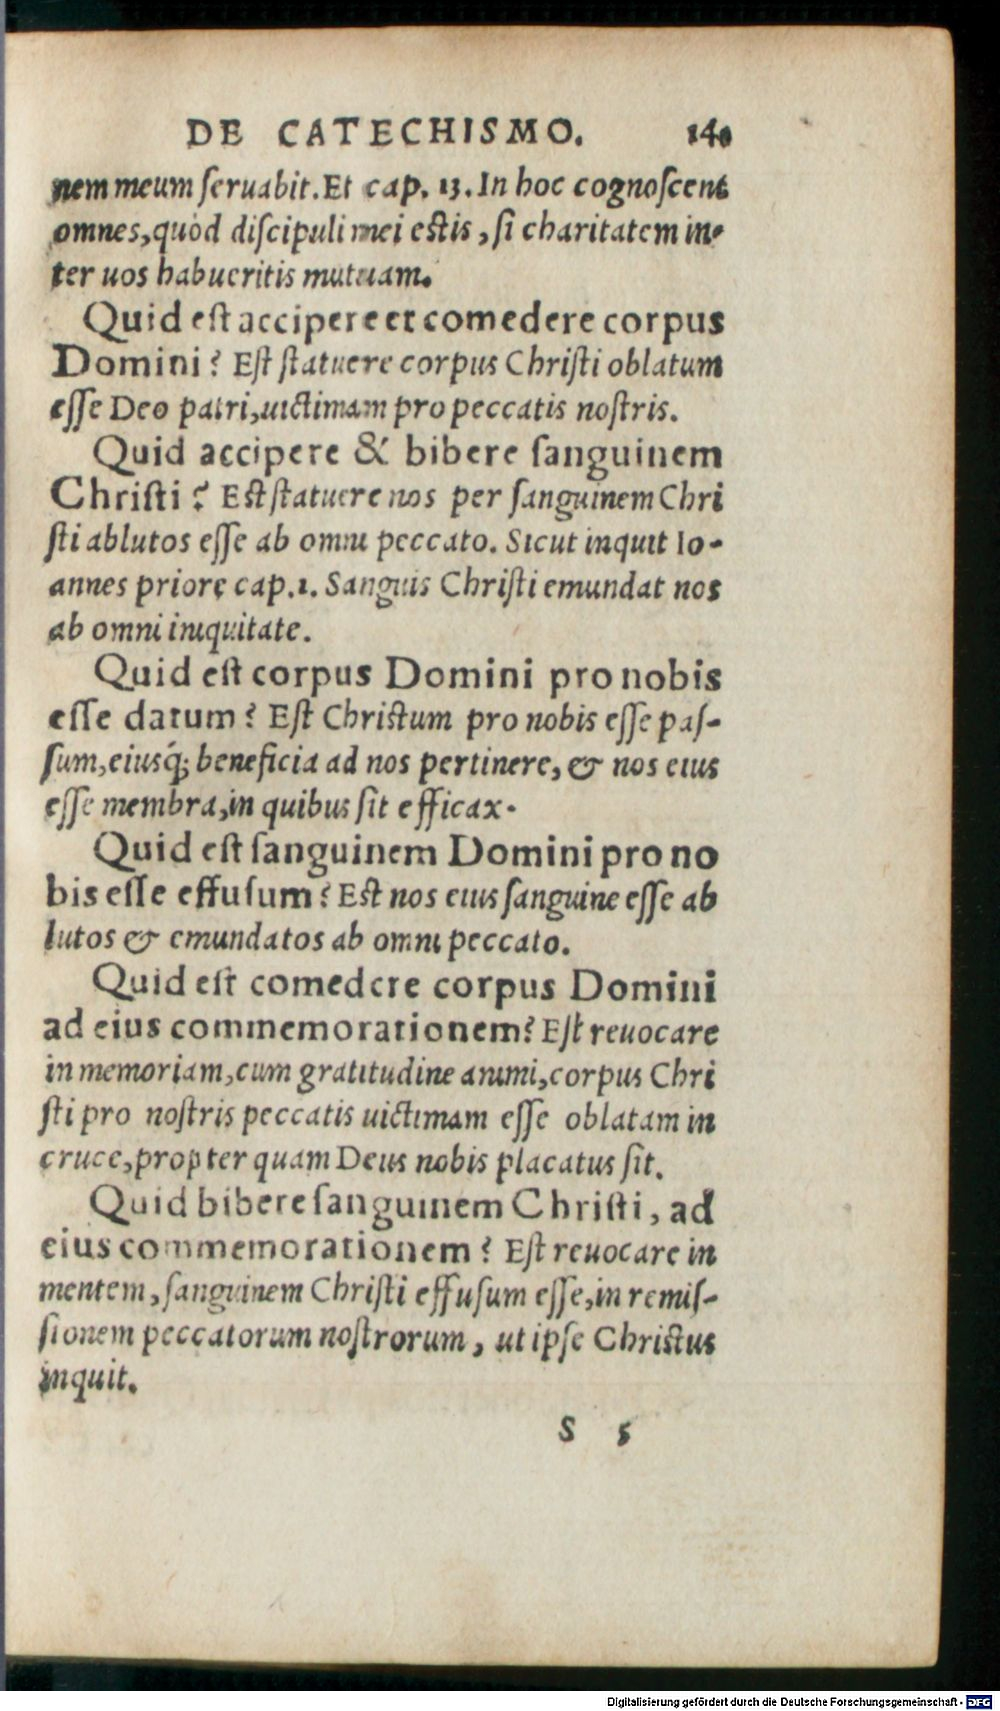 DE CATECHISMO. 140
nem meum ſeruabit. Et cap. 13. In hoc cognoſcent
omnes, quòd diſcipuli mei eſtis, ſi charitatem in-
ter uos habueritis mutuam.
Quid eſt accipere et comedere corpus
Domini? Eſt ſtatuere corpus Chriſti oblatum
eſſe Deo patri, uictimam pro peccatis noſtris.
Quid accipere & bibere ſanguinem
Chriſti? Eſt ſtatuere nos per ſanguinem Chri
ſti ablutos eſſe ab omni peccato. Sicut inquit Io-
annes priore cap. 1. Sanguis Chriſti emundat nos
ab omni iniquitate.
Quid eſt corpus Domini pro nobis
eſſe datum? Eſt Chriſtum pro nobis eſſe paſ-
ſum, eiusq́; beneficia ad nos pertinere, & nos eius
eſſe membra, in quibus ſit efficax.
Quid eſt ſanguinem Domini pro no
bis eſſe effuſum? Eſt nos eius ſanguine eſſe ab
lutos & emundatos ab omni peccato.
Quid eſt comedere corpus Domini
ad eius commemorationem? Eſt reuocare
in memoriam, cum gratitudine animi, corpus Chri
ſti pro noſtris peccatis uictimam eſſe oblatam in
cruce, propter quam Deus nobis placatus ſit.
Quid bibere ſanguinem Chriſti, ad
eius commemorationem? Eſt reuocare in
mentem, ſanguinem Chriſti effuſum eſſe, in remiſ-
ſionem peccatorum noſtrorum, ut ipſe Chriſtus
inquit.
S 5
Digitalisierung gefördert durch die Deutsche Forschungsgemeinschaft - DFG